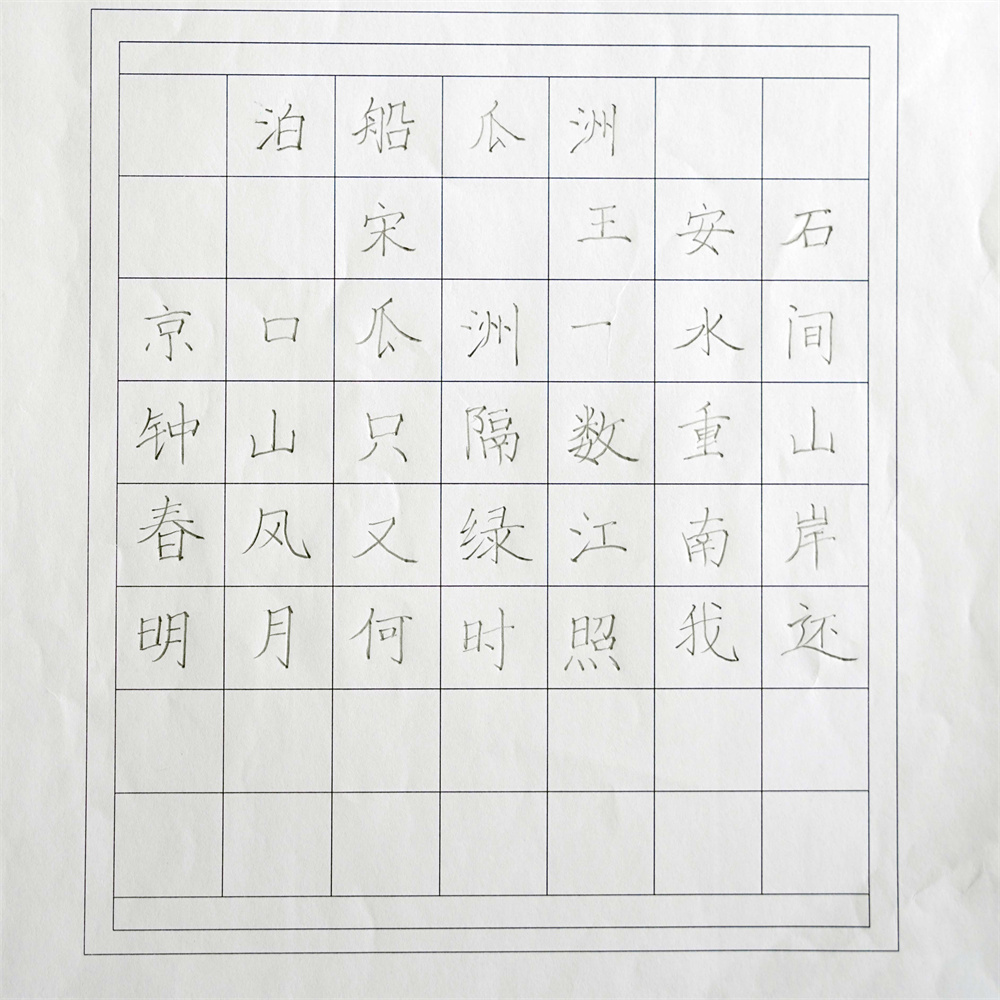 泊船瓜洲
宋 王安石
京口瓜洲一水间
钟山只隔数重山
春风又绿江南岸
明月何时照我还